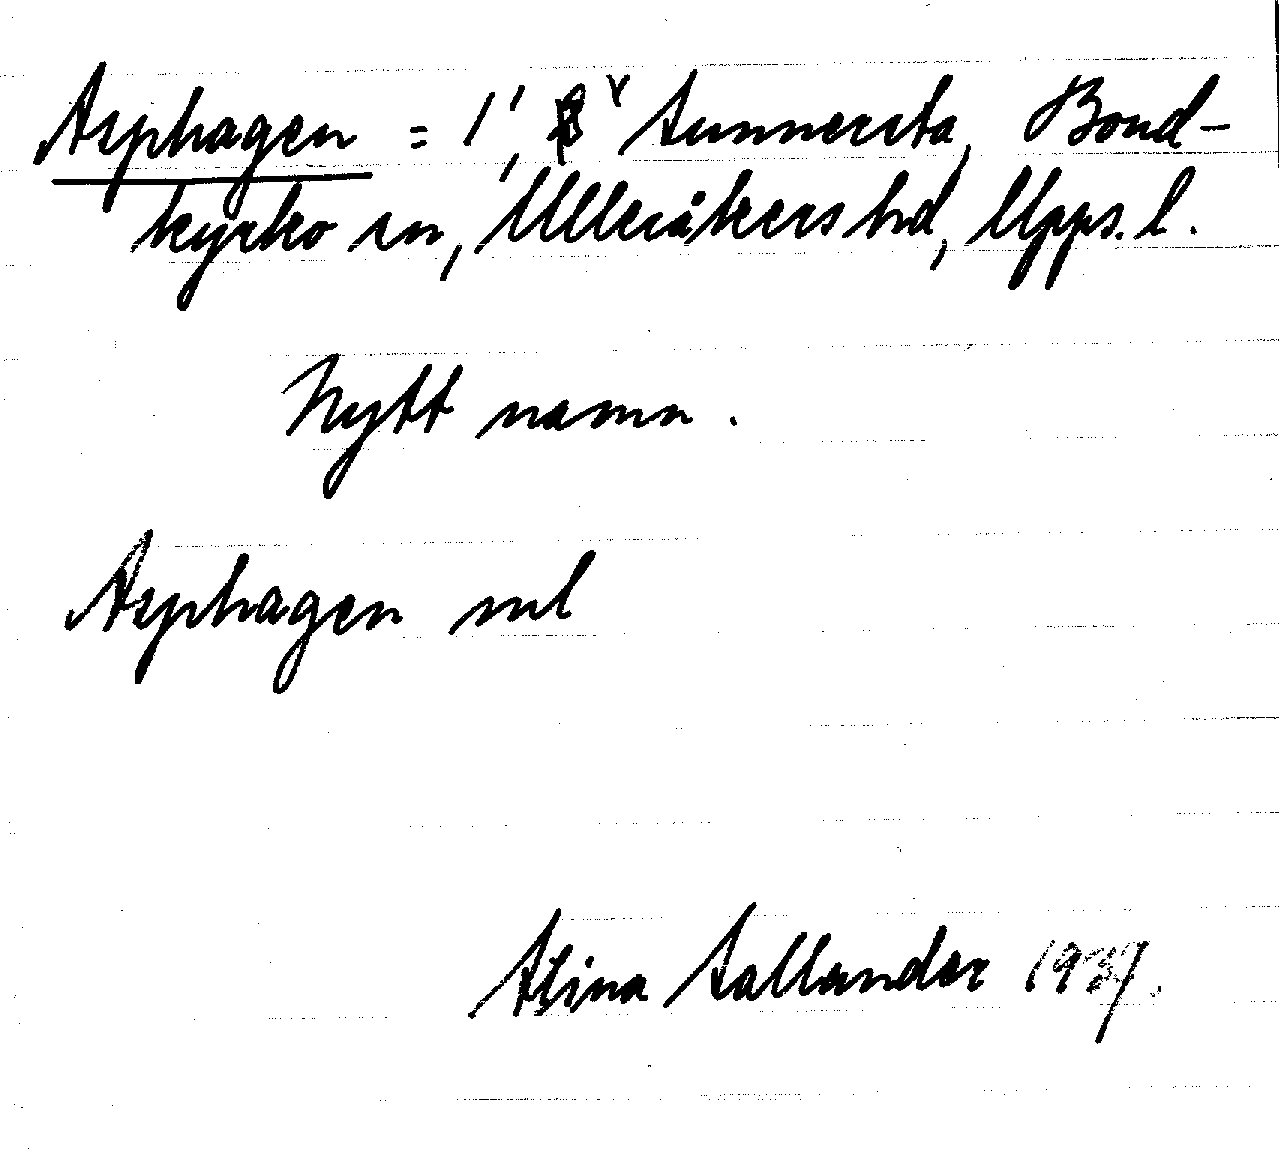 Asphagen = 1', 8^v Sunnersta, Bond-
kyrko sn, Ulleråkers hd, Upps. l.
Nytt namn.
Asphagen ml
Stina Sallander 1937.